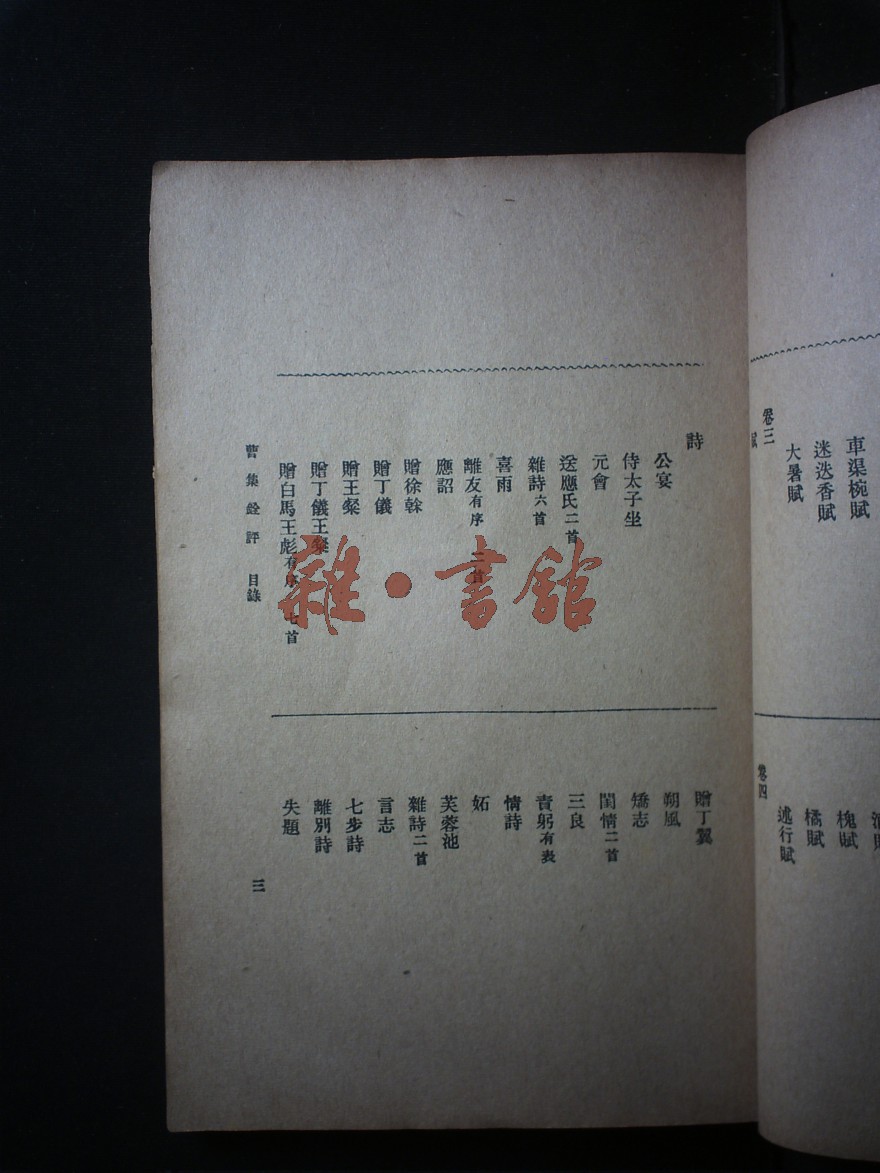 車渠椀賦
迷迭香賦
大暑賦
卷三
槐賦
橘賦
述行賦
卷四
詩
公宴
侍太子坐
元會
送應氏二首
雜詩六首
喜雨
離友有序 二首
應詔
贈徐榦
贈丁儀
贈王粲
贈丁儀王粲
贈白馬王彪有序 七首
贈丁翼
朔風
矯志
閨情二首
三良
責躬有表
情詩
妬
芙蓉池
雜詩二首
言志
七步詩
離別詩
失題
曹集銓評 目錄
三
雜·書館